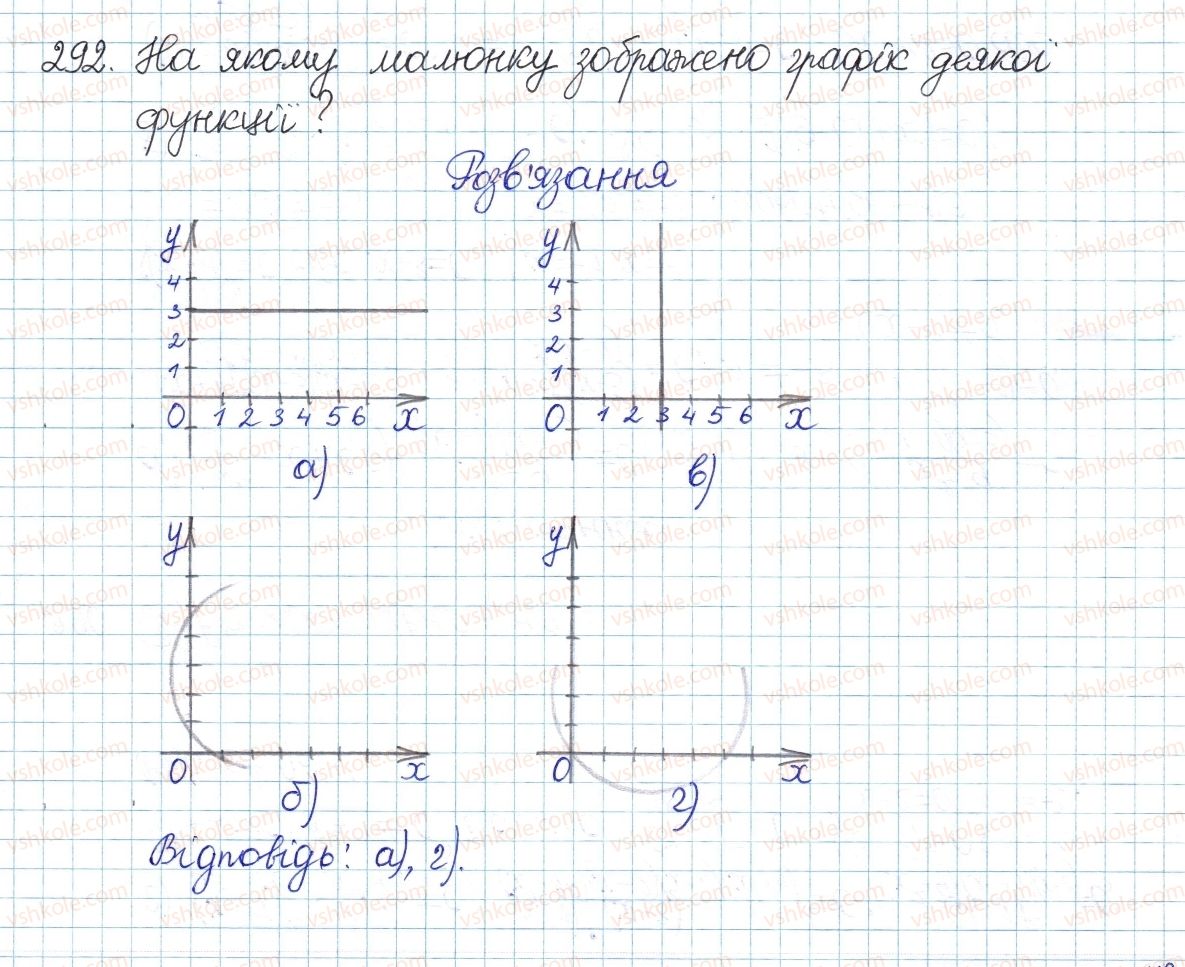 292. На якому малюнку зображено графік деякої
функції?
Розв'язання
у
4
3
2
1
0 1 2 3 4 5 6 х
а)
у
4
3
2
1
0 1 2 3 4 5 6 х
в)
у
0 х
б)
у
0 х
г)
Відповідь: а), г).
vshkole.com